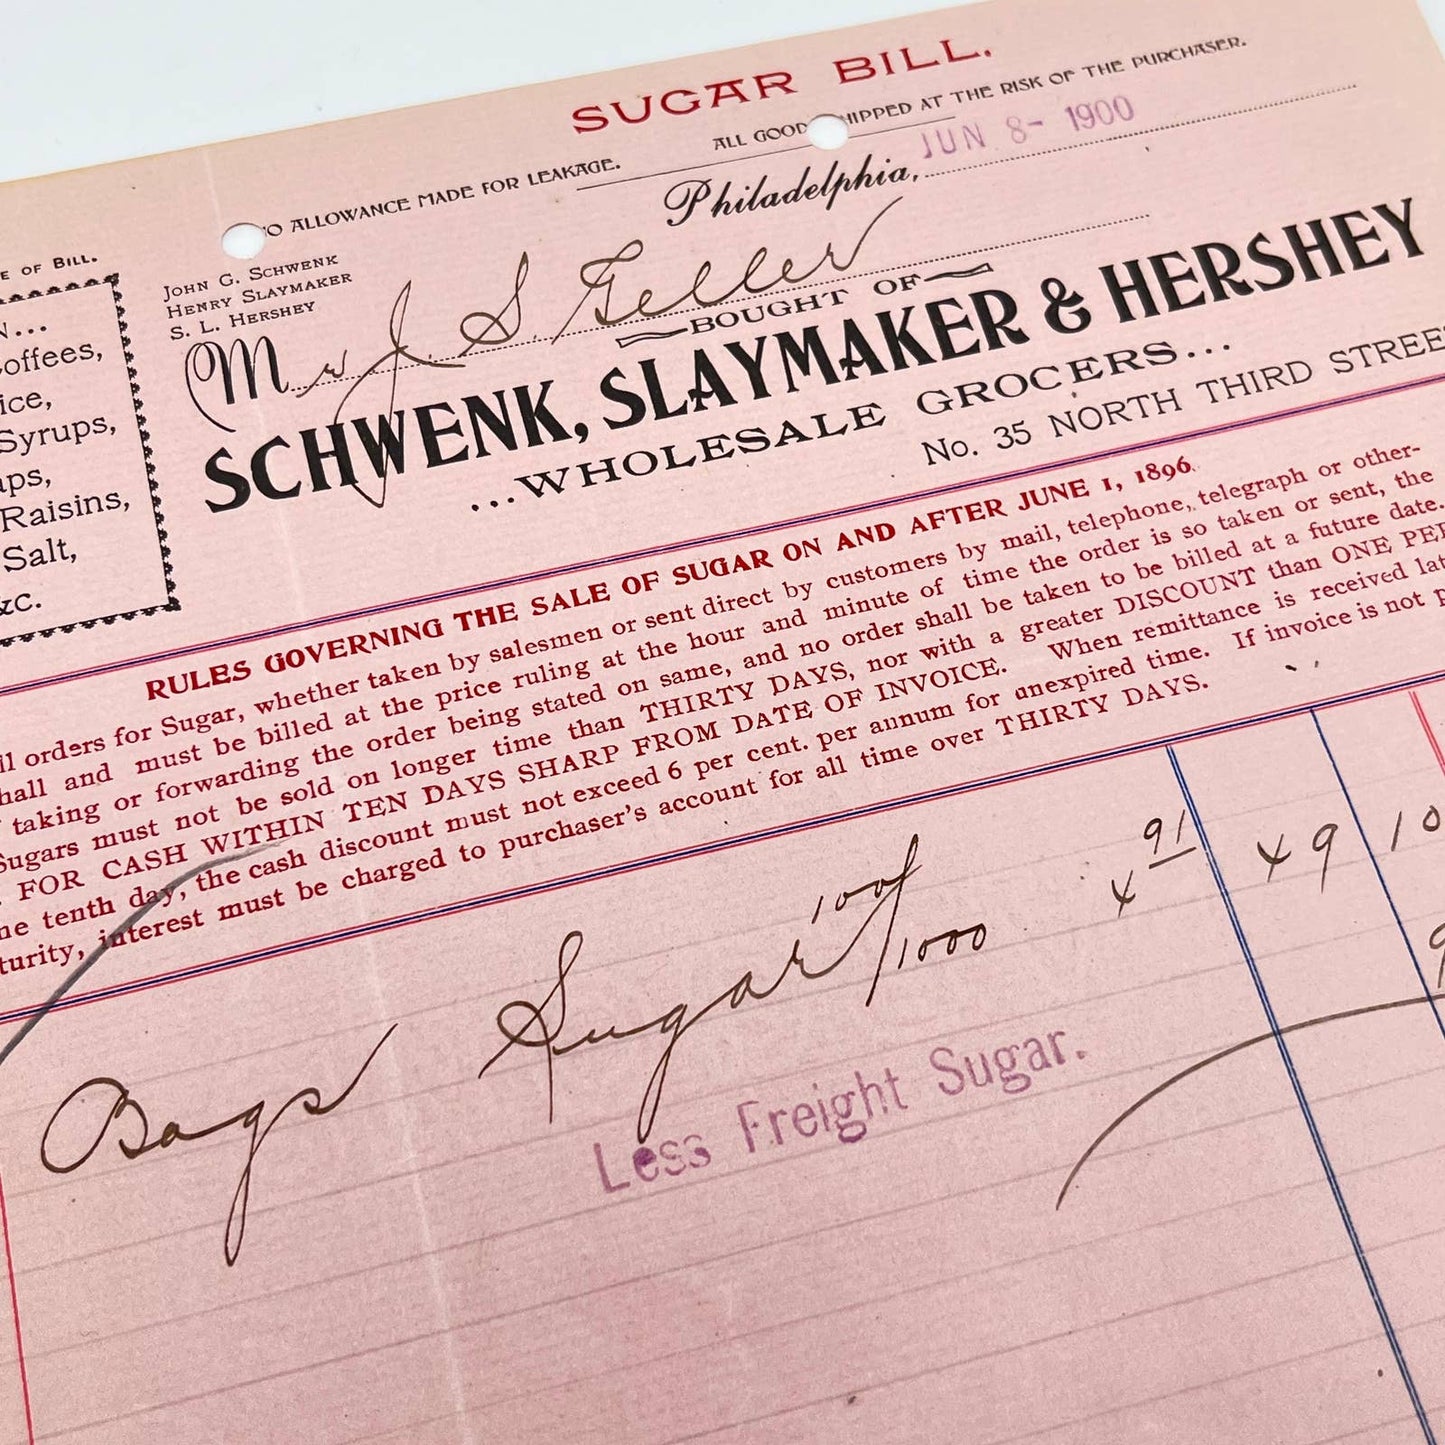 SUGAR BILL.
NO ALLOWANCE MADE FOR LEAKAGE.
ALL GOODS SHIPPED AT THE RISK OF THE PURCHASER.
Philadelphia, JUN 8- 1900
E OF BILL.
JOHN G. SCHWENK
HENRY SLAYMAKER
S. L. HERSHEY
Mr J. S. Geller
BOUGHT OF
SCHWENK, SLAYMAKER & HERSHEY
...WHOLESALE GROCERS...
No. 35 NORTH THIRD STREE
N...
offees,
ice,
Syrups,
ups,
Raisins,
Salt,
&c.
RULES GOVERNING THE SALE OF SUGAR ON AND AFTER JUNE 1, 1896.
ll orders for Sugar, whether taken by salesmen or sent direct by customers by mail, telephone, telegraph or other-
hall and must be billed at the price ruling at the hour and minute of time the order is so taken or sent, the
taking or forwarding the order being stated on same, and no order shall be taken to be billed at a future date.
Sugars must not be sold on longer time than THIRTY DAYS, nor with a greater DISCOUNT than ONE PE
. FOR CASH WITHIN TEN DAYS SHARP FROM DATE OF INVOICE. When remittance is received lat
ne tenth day, the cash discount must not exceed 6 per cent. per annum for unexpired time. If invoice is not p
turity, interest must be charged to purchaser's account for all time over THIRTY DAYS.
Bags Sugar 100/1000 4 91 49 10
9
Less Freight Sugar.